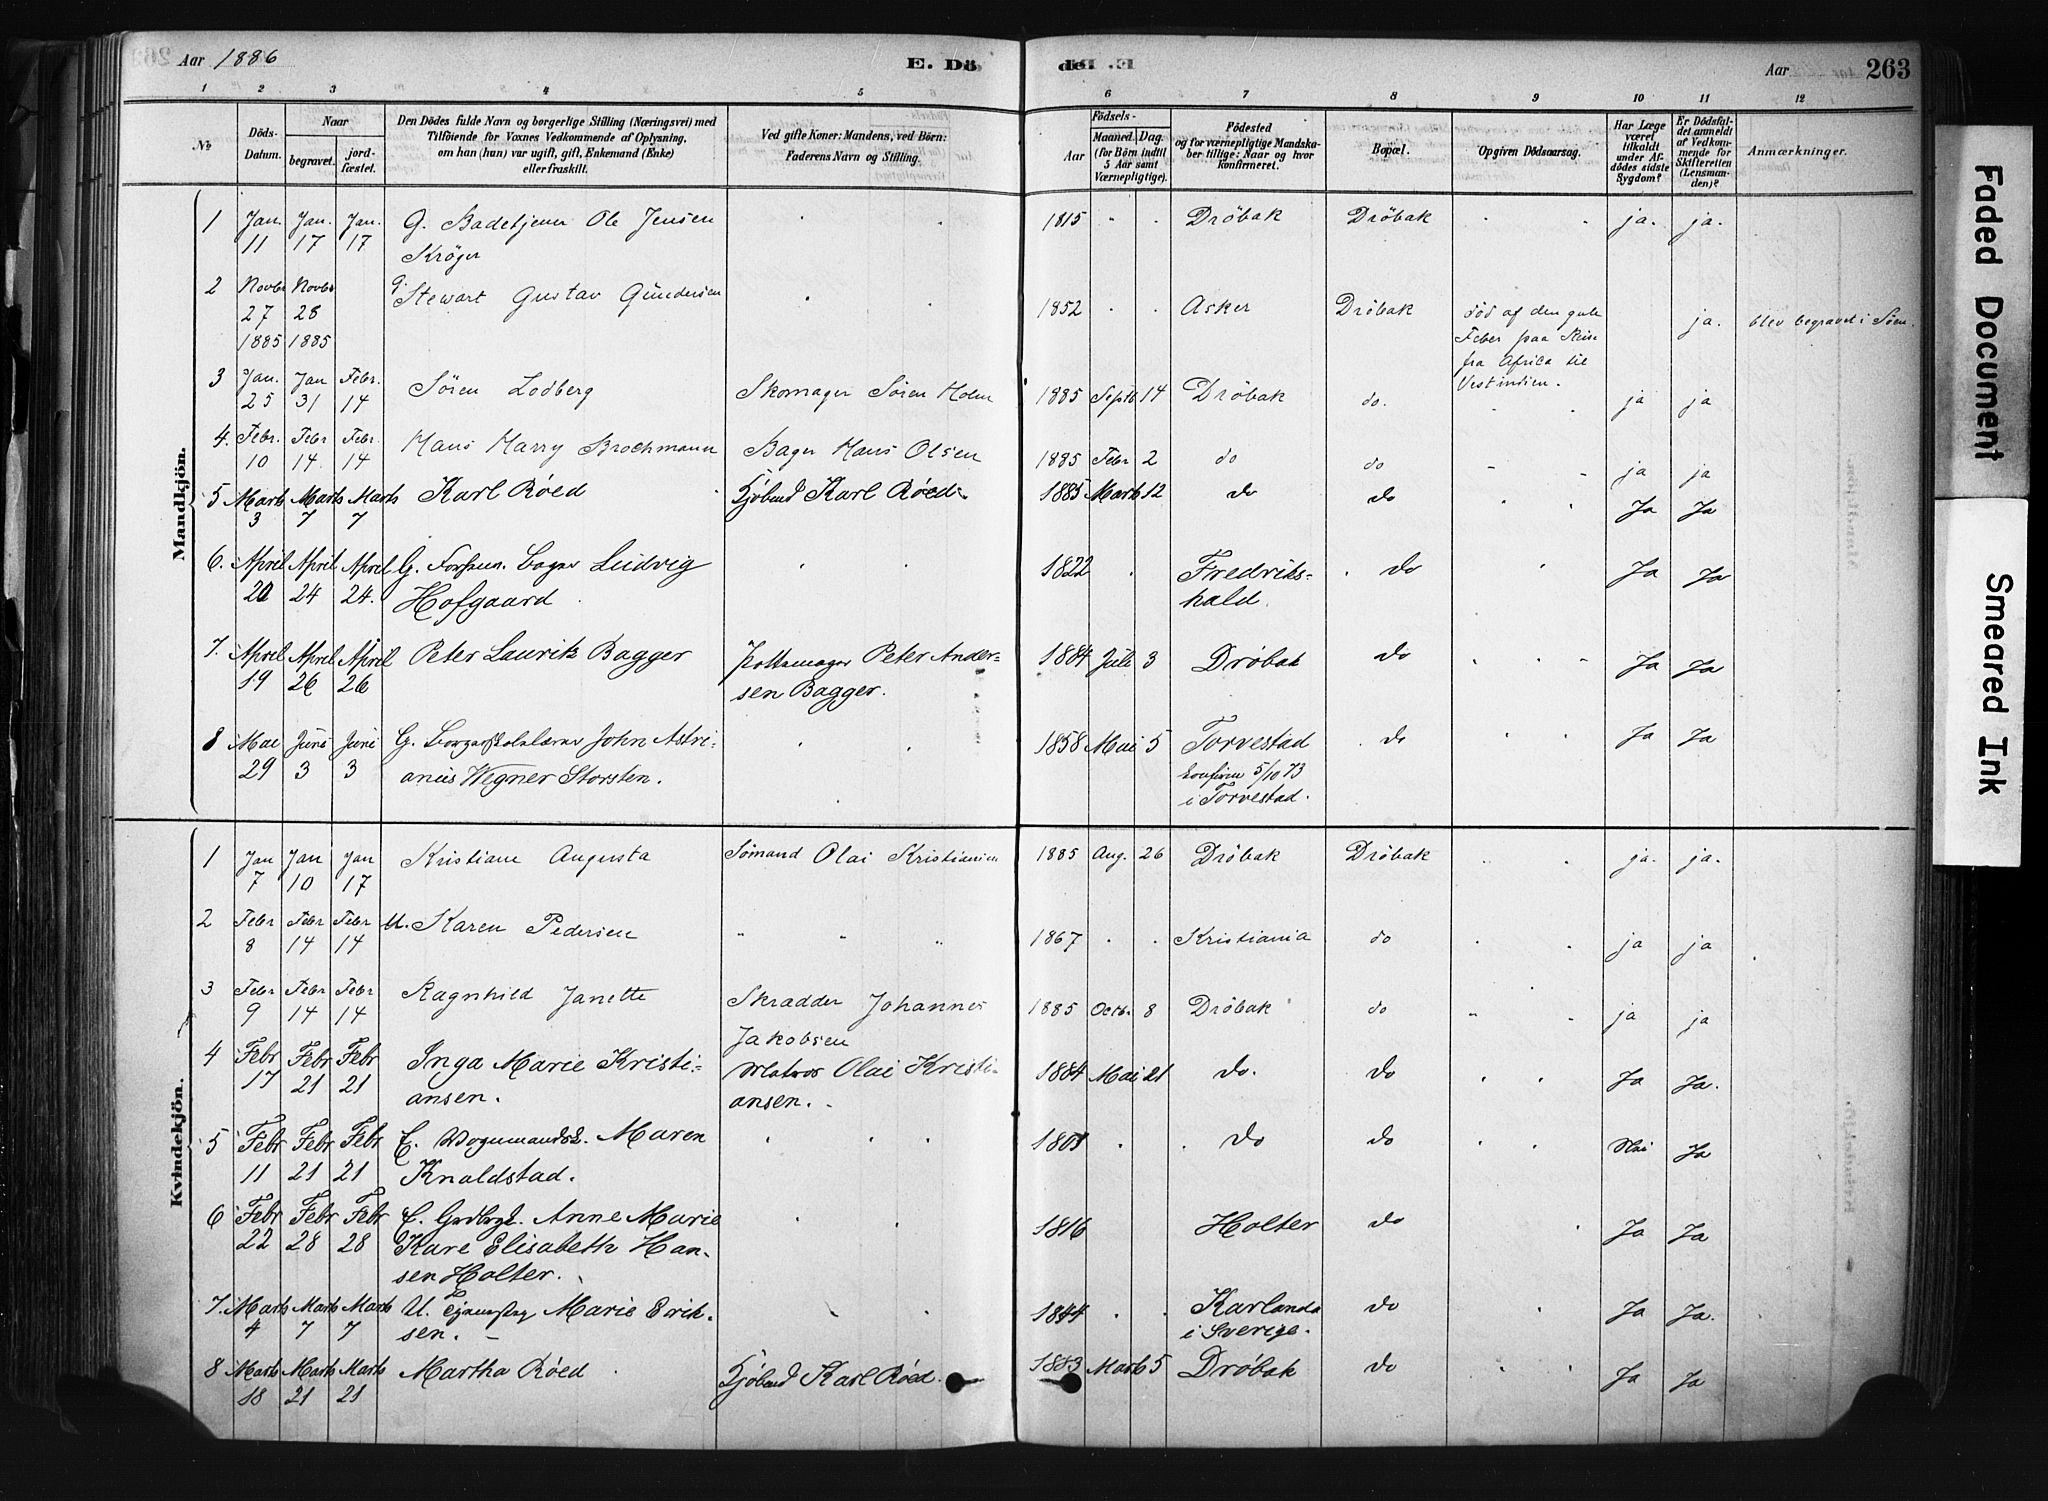 Aar 1886
E. Dö
de E.
Aar
263
1 2 3 4 5 6 7 8 9 10 11 12
№
Döds-Datum.
Naar
begravet.
jord-fæstet.
Den Dödes fulde Navn og borgerlige Stilling (Næringsvei) med
Tilföiende for Voxnes Vedkommende af Oplysning,
om han (hun) var ugift, gift, Enkemand (Enke)
eller fraskilt.
Ved gifte Koner: Mandens, ved Börn:
Faderens Navn og Stilling.
Födsels-
Aar
Maaned. Dag.
(for Börn indtil
5 Aar samt
Værnepligtige).
Födested
og for værnepligtige Mandska-
ber tillige: Naar og hvor
konfirmeret.
Bopæl.
Opgiven Dödsaarsag.
Har Læge
været
tilkaldt
under Af-
dödes sidste
Sygdom?
Er Dödsfal-
det anmeldt
af Vedkom-
mende for
Skifteretten
(Lensman-
den)?
Anmærkninger.
Mandkjön.
1 Jan. 11 Jan. 17 Jan. 17 G. Badetjener Ole Jensen Krøger 1815 Drøbak Drøbak ja. ja.
2 Novbr 27 1885 Novbr 28 1885 G. Stewart Gustav Gundersen 1852 Asker Drøbak død af den gule
Feber paa Reise
fra Africa til
Vestindien. ja. blev begravet i Søen.
3 Jan. 25 Jan 31 Febr. 14 Søren Lodberg Skomager Søren Holm 1885 Septb 14 Drøbak do. ja ja
4. Febr. 10 Febr 14. Febr. 14 Hans Harry Brochmann Bager Hans Olsen 1885 Febr 2 do do ja ja
5 Marts 3 Marts 7 Marts 7 Karl Røed Kjøbmd Karl Røed. 1885 Marts 12 do do Ja Ja
6. April 20 April 24 April 24. G. Ludvig
Hofgaard 1822 Fredriks-
hald. do Ja Ja
7. April 19 April 26 April 26 Peter Laurik Bagger Pottemager Peter Ander-
sen Bagger. 1884 Juli 3 Drøbak do Ja Ja
8 Mai 29 Juni 3 Juni 3 G. Borgerskolelærer John Astri-
anus Wegner Storsten. 1858 Mai 5 Torvestad
konfirm 5/10 73
i Torvestad. do Ja Ja
Kvindekjön.
1 Jan 7 Jan 10 Jan 17 Kristiane Augusta Sømand Olai Kristiansen 1885 Aug. 26 Drøbak Drøbak ja. ja.
2 Febr 8 Febr 14 Febr 14 U. Karen Pedersen 1867 Kristiania do ja ja
3 Febr 9 Febr 14 Febr 14 Ragnhild Janette Skradder Johannes
Jakobsen 1885 Octb. 8 Drøbak do ja ja
4 Febr 17 Febr 21 Febr 21 Inga Marie Kristi-
ansen. Matros Olai Kristi-
ansen. 1884 Mai 21 do. do Ja Ja.
5 Febr 11 Febr 21 Febr 21 E. Maren
Knaldstad. 1801 do do Nei Ja
6 Febr 22 Febr 28 Febr 28 E. Anne Marie
Kare Elisabeth Han-
sen Holter. 1816 Holter do Ja Ja
7. Marts 4 Marts 7 Marts 7 U. Marie Erik-
sen. 1844 Karlanda
i Sverige. do Ja Ja.
8 Marts 18 Marts 21 Marts 21 Martha Røed Kjøbmd Karl Røed. 1883 Marts 5 Drøbak do Ja Ja
Faded Document
Smeared Ink